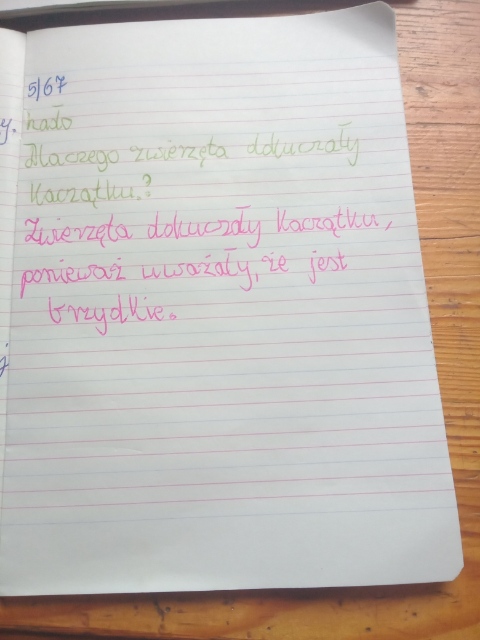 5/67
hasło
Dlaczego zwierzęta dokuczały
kaczątku?
Zwierzęta dokuczały kaczątku,
ponieważ uważały, że jest
brzydkie.
y.
j